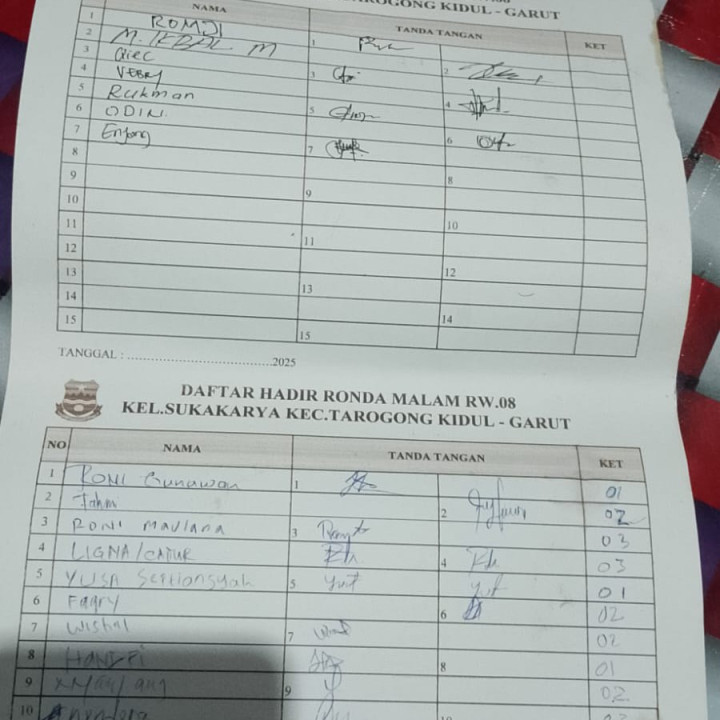 TAROGONG KIDUL - GARUT
NAMA TANDA TANGAN KET
1 ROMJI 1
2 M. IKBAL M 2
3 3
4 VEBRY 4
5 Rukman 5
6 ODIN 6
7 Enjang 7
8 8
9 9
10 10
11 11
12 12
13 13
14 14
15 15
TANGGAL : ........................................2025
DAFTAR HADIR RONDA MALAM RW.08
KEL.SUKAKARYA KEC.TAROGONG KIDUL - GARUT
NO NAMA TANDA TANGAN KET
1 RONI Gunawan 1 01
2 Fahmi 2 02
3 RONI MAULANA 3 03
4 LIGNA/ 4 03
5 YUSA Septiansyah 5 01
6 Fagry 6 02
7 Wishal 7 02
8 8 01
9 9 02
10 10